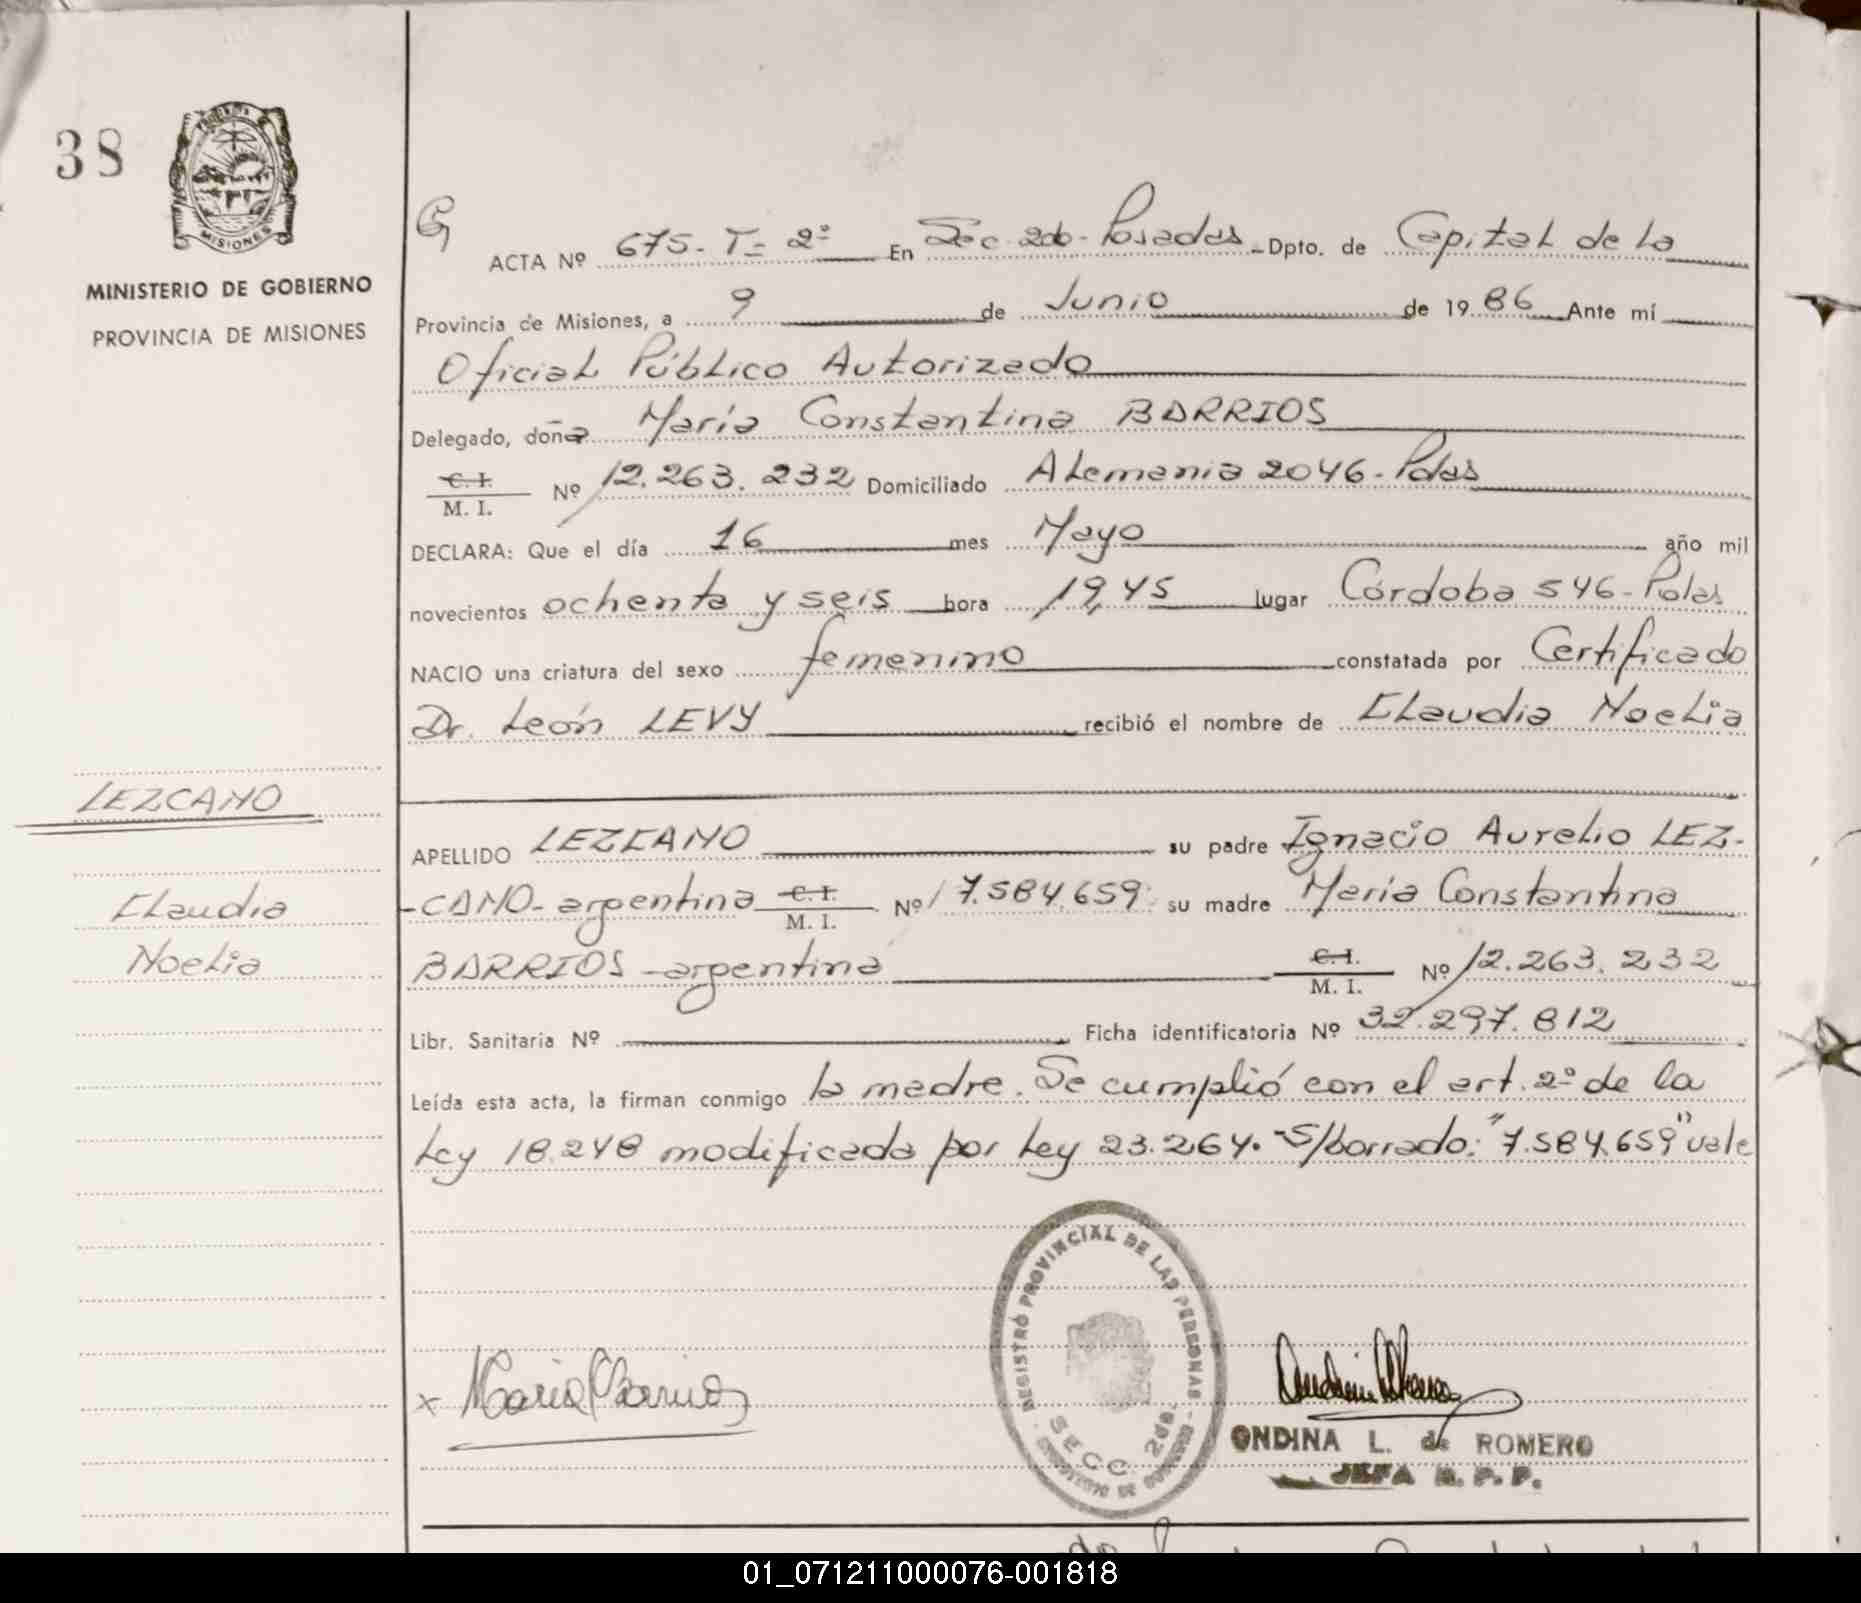 38
MISIONES
MINISTERIO DE GOBIERNO
PROVINCIA DE MISIONES
ACTA Nº 675- T= 2º En Sec. 2da- Posadas - Dpto. de Capital de la
Provincia de Misiones, a 9 de Junio de 1986 Ante mí
Oficial Público Autorizado
Delegado, doña María Constantina BARRIOS
C. I.
M. I. Nº 12.263.232 Domiciliado Alemania 2046-Pdas
DECLARA: Que el día 16 mes Mayo año mil
novecientos ochenta y seis hora 19,45 lugar Córdoba 546-Pdas
NACIO una criatura del sexo femenino constatada por Certificado
Dr. León LEVY recibió el nombre de Claudia Noelia
LEZCANO
APELLIDO LEZCANO su padre Ignacio Aurelio LEZ-
Claudia
-CANO- argentina C. I. M. I. Nº 7.584.659 su madre María Constantina
Noelia
BARRIOS -argentina C. I. M. I. Nº 12.263.232
Libr. Sanitaria Nº Ficha identificatoria Nº 32.297.812
Leída esta acta, la firman conmigo la madre. Se cumplió con el art. 2º de la
Ley 18.248 modificada por Ley 23.264.-S/borrado: "7.584.659" vale
REGISTRO PROVINCIAL DE LAS PERSONAS
SECC. 2da.
MINISTERIO DE GOBIERNO
x Maria Barrios
ONDINA L. de ROMERO
JEFA R. P. P.
01_071211000076-001818